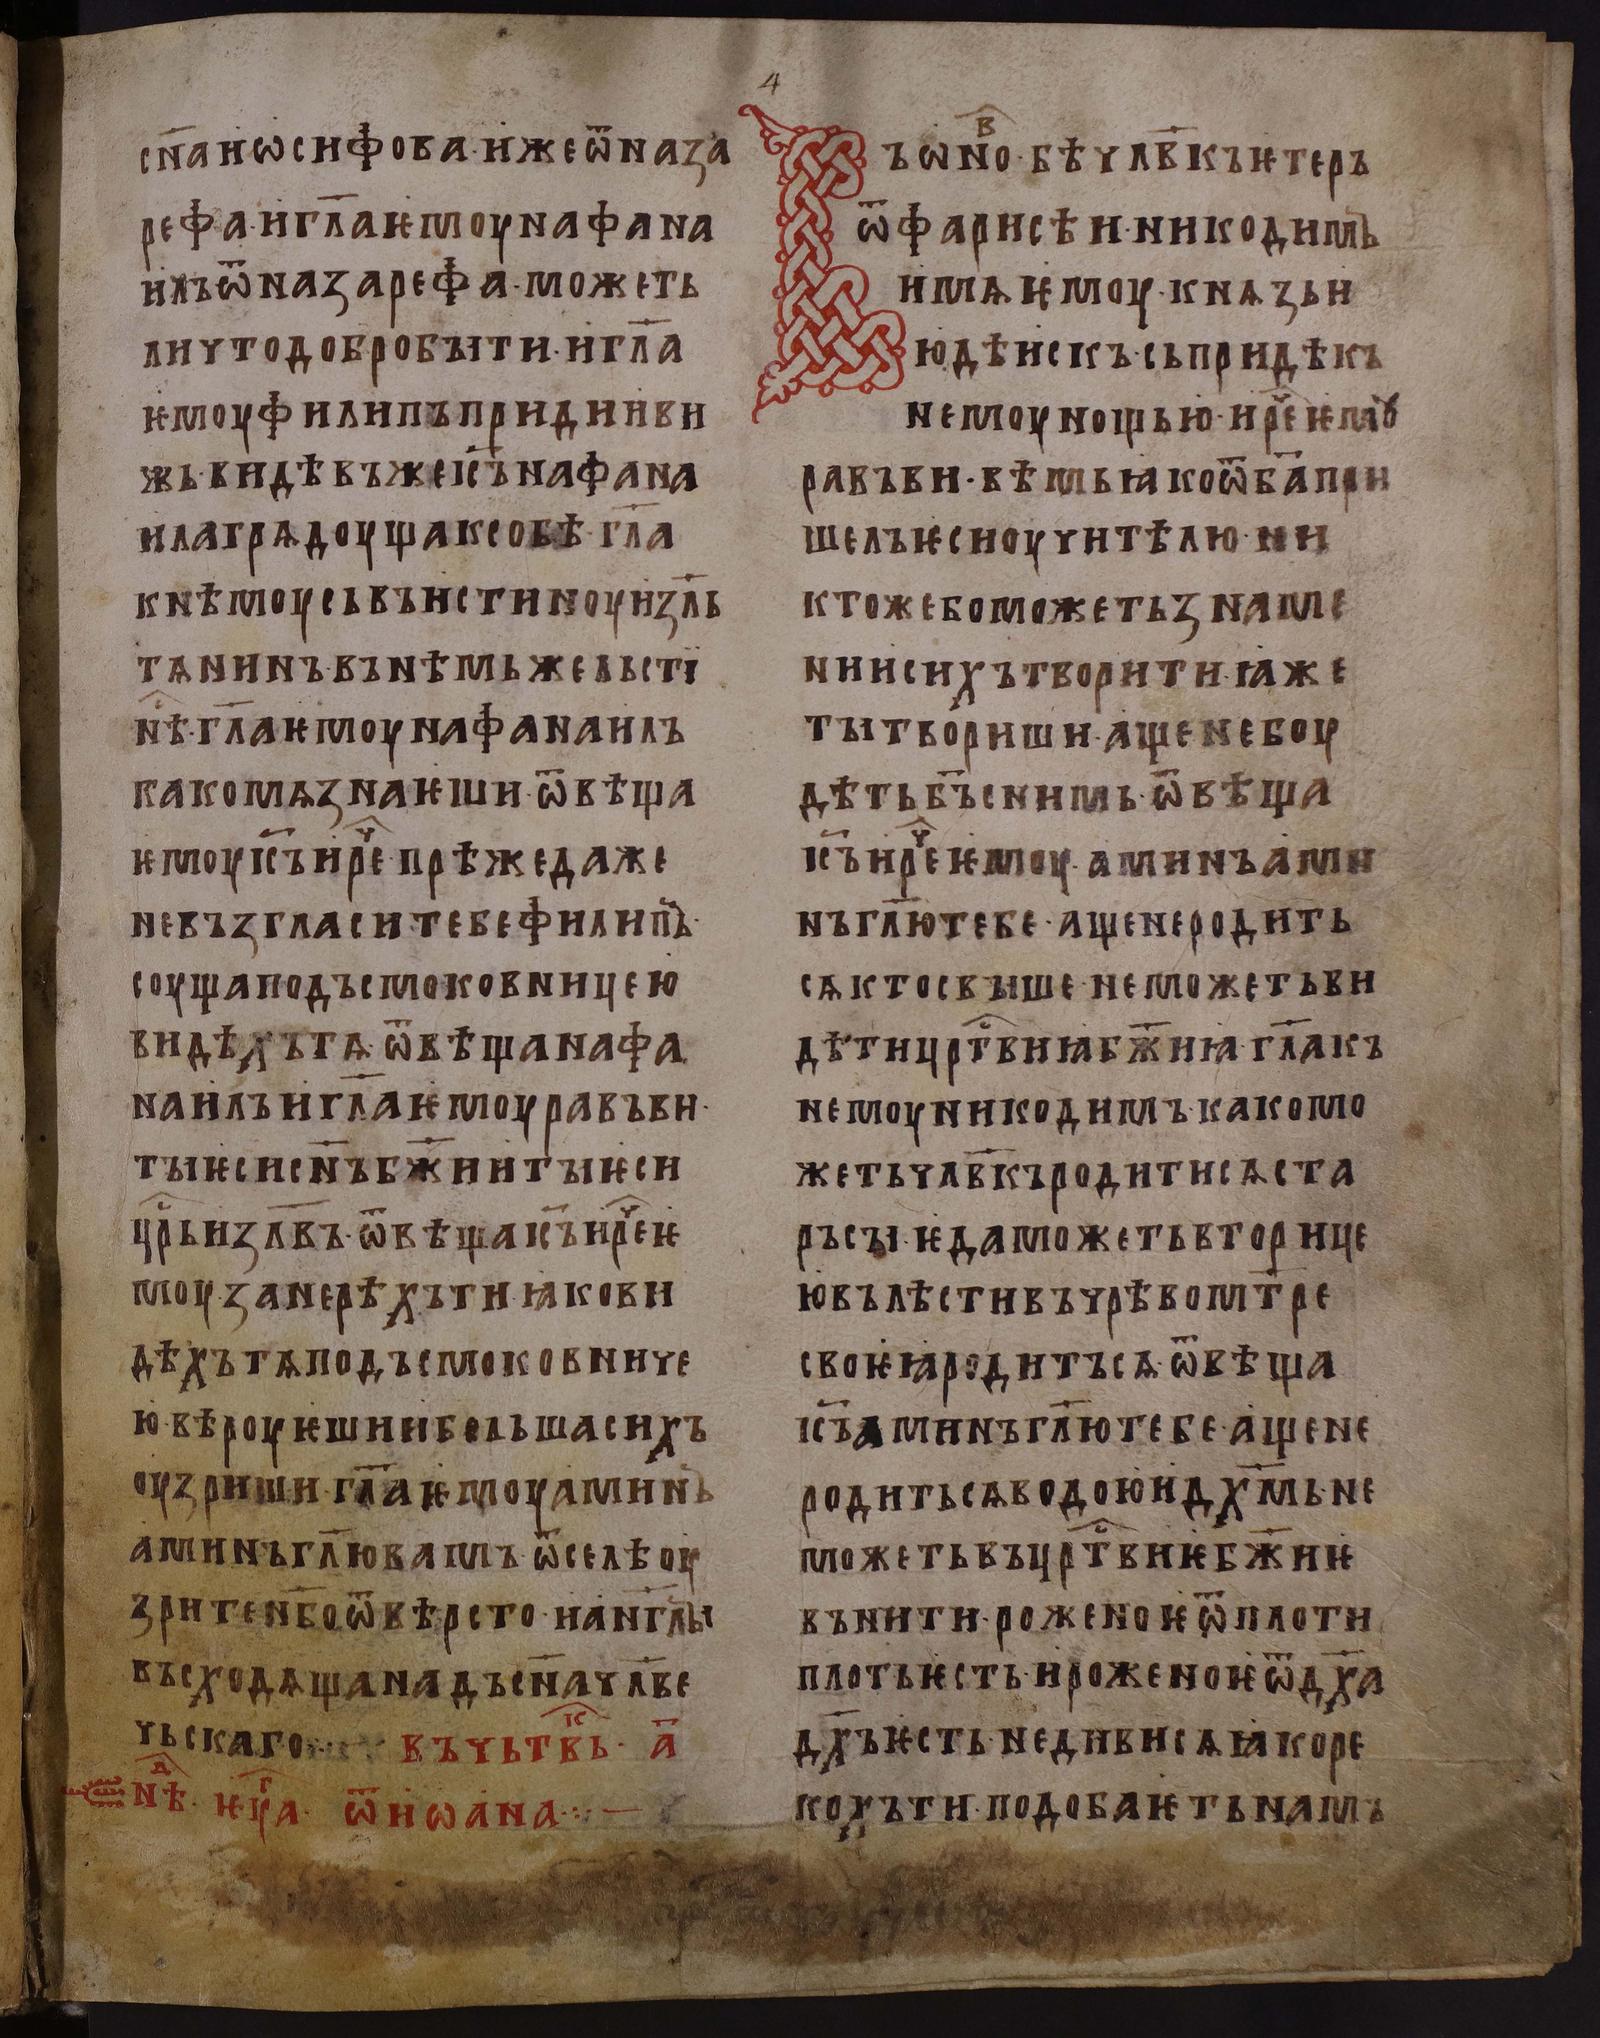 4
сн҃а иѡсифова · иже ѿ наза
рефа · и гл҃а ѥмоу нафана
илъ ѿ назарефа · можеть
ли что добро быти · и гл҃а
ѥмоу филипъ приди и ви
жь · видѣвъ же іс҃ъ нафана
ила грѧдоуща к собѣ · гл҃а
к нѣмоу сь въ истиноу из҃ль
тѧнинъ въ нѣмь же льсті
нѣⷭ҇ · гл҃а ѥмоу нафанаилъ
како мѧ знаѥши · ѿвѣща
ѥмоу іс҃ъ и рⷱ҇е · прѣже даже
не възгласи тебе филипъ ·
соуща подъ смоковницею
видѣхъ тѧ · ѿвѣща нафа
наилъ и гл҃а ѥмоу равъви ·
ты ѥси сн҃ъ бж҃ии ты ѥси
цⷭ҇рь изл҃въ · ѿвѣща іс҃ъ и рⷱ҇е ѥ
моу · зане рѣхъ ти ꙗко ви
дѣхъ тѧ подъ смоковниче
ю вѣроуѥши и больша сихъ
оузриши · гл҃а ѥмоу аминъ
аминъ гл҃ю вамъ · ѿселѣ оу
зрите нб҃о ѿвѣрсто · и анг҃лы
въсходѧща надъ сн҃а чл҃вѣ
чьскаго въ чьтвⷦ҇ь · а҃
нⷣѣ · ѥуⷢ҇а · ѿ иѡана ·:· —
Въ ѡнⷡ҇о · бѣ чл҃вкъ ѥтеръ
ѿ фарисѣи · никодимъ
имѧ ѥмоу · кнѧзь и
юдѣискъ · сь приде къ
немоу нощью · и рⷱ҇е ѥмоу
равъви · вѣмь ꙗко ѿ ба҃ при
шелъ ѥси оучитѣлю · ни
ктоже бо можеть знаме
нии сихъ творити · ꙗже
ты твориши · аще не боу
дѣть бъ҃ с нимь · ѿвѣща
іс҃ъ и рⷱ҇е ѥмоу · аминъ ами
нъ гл҃ю тебе · аще не родить
сѧ кто свыше · не можеть ви
дѣти црⷭ҇твиꙗ бж҃иꙗ · гл҃а къ
немоу никодимъ · како мо
жеть чл҃вкъ родитисѧ ста
ръ сы · ѥда можеть вторице
ю вълѣсти въ чрѣво мт҃ре
своѥꙗ родитъсѧ · ѿвѣща
іс҃ъ аминъ гл҃ю тебе · аще не
родитьсѧ водою и дх҃мь · не
можеть въ црⷭ҇твиѥ бж҃иѥ
вънити · роженоѥ ѿ плоти
плоть ѥсть · и роженоѥ ѿ дх҃а
дх҃ъ ѥсть · не дивисѧ ꙗко ре
кохъ ти · подобаѥть намъ